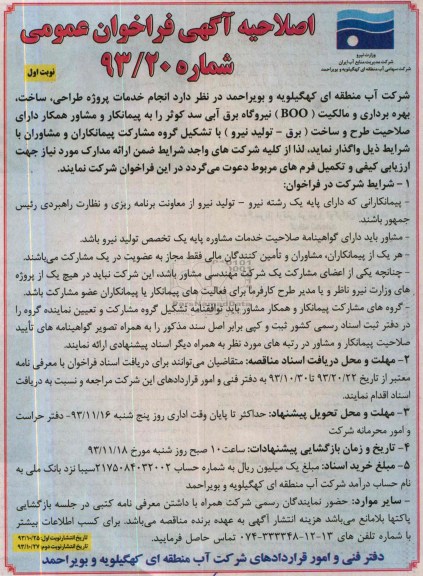 اصلاحیه آگهی فراخوان عمومی
شماره ۹۳/۲۰
نوبت اول
وزارت نیرو
شرکت مدیریت منابع آب ایران
شرکت سهامی آب منطقه ای کهگیلویه و بویراحمد
شرکت آب منطقه ای کهگیلویه و بویراحمد در نظر دارد انجام خدمات پروژه طراحی، ساخت،
بهره برداری و مالکیت ( BOO ) نیروگاه برق آبی سد کوثر را به پیمانکار و مشاور همکار دارای
صلاحیت طرح و ساخت ( برق - تولید نیرو ) با تشکیل گروه مشارکت پیمانکاران و مشاوران با
شرایط ذیل واگذار نماید، لذا از کلیه شرکت های واجد شرایط ضمن ارائه مدارک مورد نیاز جهت
ارزیابی کیفی و تکمیل فرم های مربوط دعوت می‌گردد در این فراخوان شرکت نمایند.
۱ - شرایط شرکت در فراخوان:
- پیمانکارانی که دارای پایه یک رشته نیرو - تولید نیرو از معاونت برنامه ریزی و نظارت راهبردی رئیس
جمهور باشند.
- مشاور باید دارای گواهینامه صلاحیت خدمات مشاوره پایه یک تخصص تولید نیرو باشد.
- هر یک از پیمانکاران، مشاوران و تأمین کنندگان مالی فقط مجاز به عضویت در یک مشارکت می‌باشند.
- چنانچه یکی از اعضای مشارکت یک شرکت مهندسی مشاور باشد، این شرکت نباید در هیچ یک از پروژه
های وزارت نیرو ناظر و یا مدیر طرح کارفرما برای فعالیت های پیمانکار یا پیمانکاران عضو مشارکت باشد.
- گروه های مشارکت پیمانکار و همکار مشاور باید توافقنامه تشکیل گروه مشارکت و تعیین نماینده گروه را
در دفتر ثبت اسناد رسمی کشور ثبت و کپی برابر اصل سند مذکور را به همراه تصویر گواهینامه های تأیید
صلاحیت پیمانکار و مشاور در رتبه های مورد نظر به همراه دیگر اسناد پیشنهادی ارائه نمایند.
۲- مهلت و محل دریافت اسناد مناقصه: متقاضیان می‌توانند برای دریافت اسناد فراخوان با معرفی نامه
معتبر از تاریخ ۹۳/۲۰/۲۲ تا ۹۳/۱۰/۳۰ به دفتر فنی و امور قراردادهای این شرکت مراجعه و نسبت به دریافت
اسناد اقدام نمایند.
۳- مهلت و محل تحویل پیشنهاد: حداکثر تا پایان وقت اداری روز پنج شنبه ۹۳/۱۱/۱۶- دفتر حراست
و امور محرمانه شرکت
۴- تاریخ و زمان بازگشایی پیشنهادات: ساعت ۱۰ صبح روز شنبه مورخ ۹۳/۱۱/۱۸
۵- مبلغ خرید اسناد: مبلغ یک میلیون ریال به شماره حساب ۲۱۷۵۰۸۴۰۳۲۰۰۲ سیبا نزد بانک ملی به
نام حساب درآمد شرکت آب منطقه ای کهگیلویه و بویراحمد
- سایر موارد: حضور نمایندگان رسمی شرکت همراه با داشتن معرفی نامه کتبی در جلسه بازگشایی
پاکتها بلامانع می‌باشد هزینه انتشار آگهی به عهده برنده مناقصه می‌باشد. برای کسب اطلاعات بیشتر
با شماره تلفن های ۱۳-۱۲-۳۳۳۳۴۸-۰۷۴ تماس حاصل فرمایید.
تاریخ انتشار نوبت اول: ۹۳/۱۰/۲۵
تاریخ انتشار نوبت دوم: ۹۳/۱۰/۲۷
دفتر فنی و امور قراردادهای شرکت آب منطقه ای کهگیلویه و بویراحمد